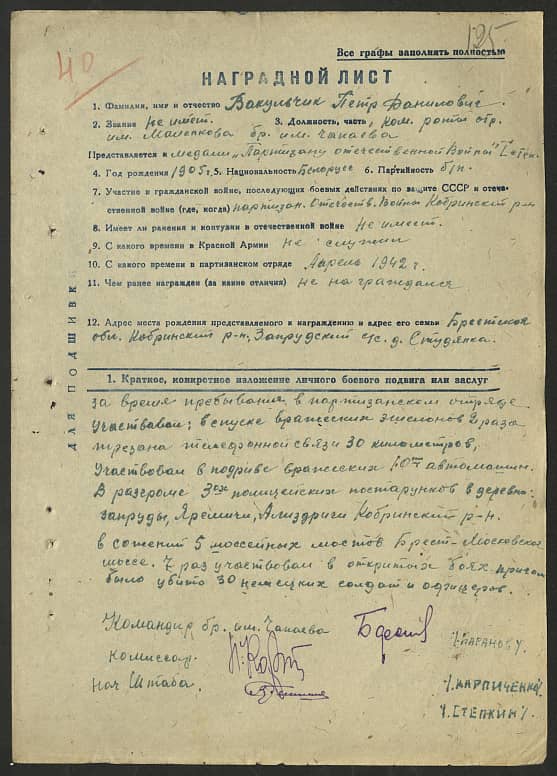 40
125
Все графы заполнять полностью
НАГРАДНОЙ ЛИСТ
1. Фамилия, имя и отчество Вакульчик Петр Данилович.
2. Звание не имеет. 3. Должность, часть, Ком. роты отр.
им. Маленкова бр. им. Чапаева
Представляется к медали „Партизану отечественной Войны" I степ.
4. Год рождения 1905 г. 5. Национальность Белорус 6. Партийность б/п.
7. Участие в гражданской войне, последующих боевых действиях по защите СССР и отече-
ственной войне (где, когда) партизан. Отечеств. Войны Кобринский р-н
8. Имеет ли ранения и контузии в отечественной войне не имеет.
9. С какого времени в Красной Армии не служил
10. С какого времени в партизанском отряде Апрель 1942 г.
11. Чем ранее награжден (за какие отличия) не награждался
12. Адрес места рождения представляемого к награждению и адрес его семьи Брестская
обл. Кобринский р-н, Запрудский с/с. д. Студянка.
ДЛЯ ПОДШИВКИ
1. Краткое, конкретное изложение личного боевого подвига или заслуг
За время пребывание в партизанском отряде
Участвовал; в спуске вражеских эшелонов 2 раза
срезана телефонной связи 30 километров,
Участвовал в подриве вражеских 10ти автомашин.
В разгроме 3ох полицейских постарунков в деревне:
Запруды, Яремичи, Ализдриги Кобринский р-н.
в сожений 5 моссейных мостов Брест-Московское
шоссе. 7 раз участвовал в открытых боях причем
было убито 30 немецких солдат и офицеров.
Командир бр. им. Чапаева
/ЦАРАНОВ/
Комиссар
/КАРПИЧЕНКО/
Нач Штаба.
/СТЕПКИН/